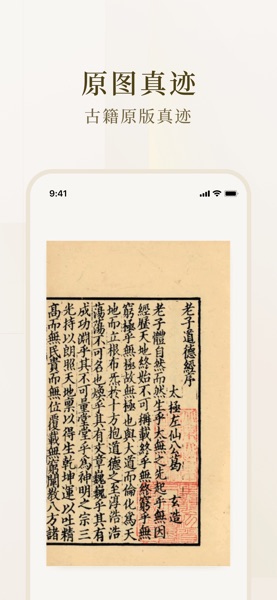 原图真迹
古籍原版真迹
9:41
老子道德經序
太極左仙公葛 玄造
老子體自然而然生乎太無之先起乎無因
經歷天地終始不可稱載終乎無終窮乎無
窮極乎無極故無極也與大道而倫化為天
地而立根布炁於十方抱道德之至淳浩浩
蕩蕩不可名也煥乎其有文章巍巍乎其有
成功淵乎其不可量堂堂乎為神明之宗三
光持以朗照天地稟以得生乾坤運以吐精
高而無民貴而無位覆載無窮聞教八方諸